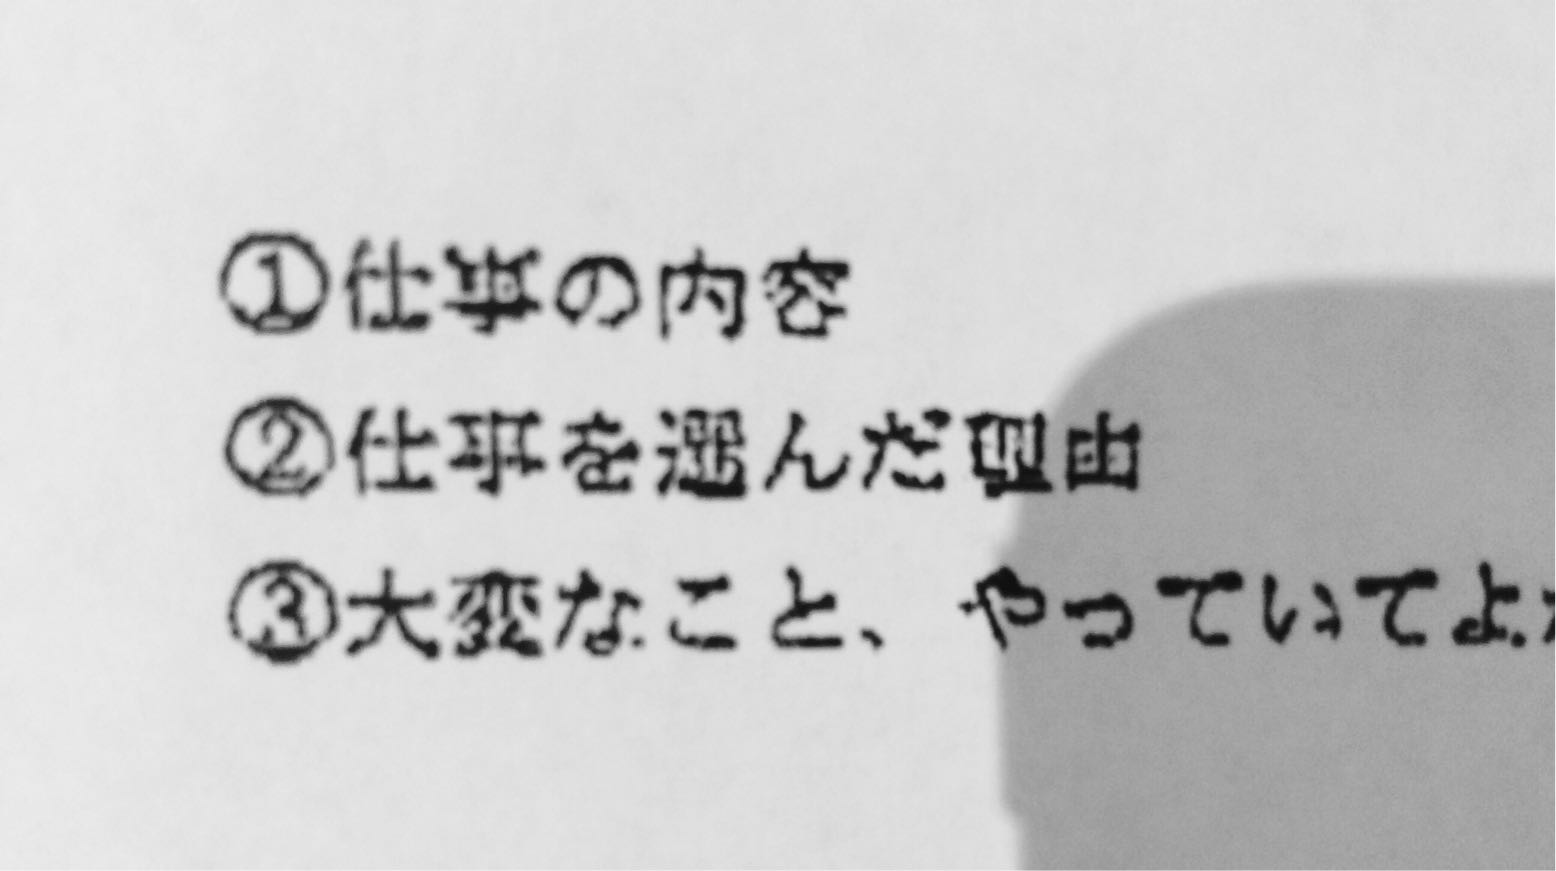 ①仕事の内容
②仕事を選んだ理由
③大変なこと、やっていてよ